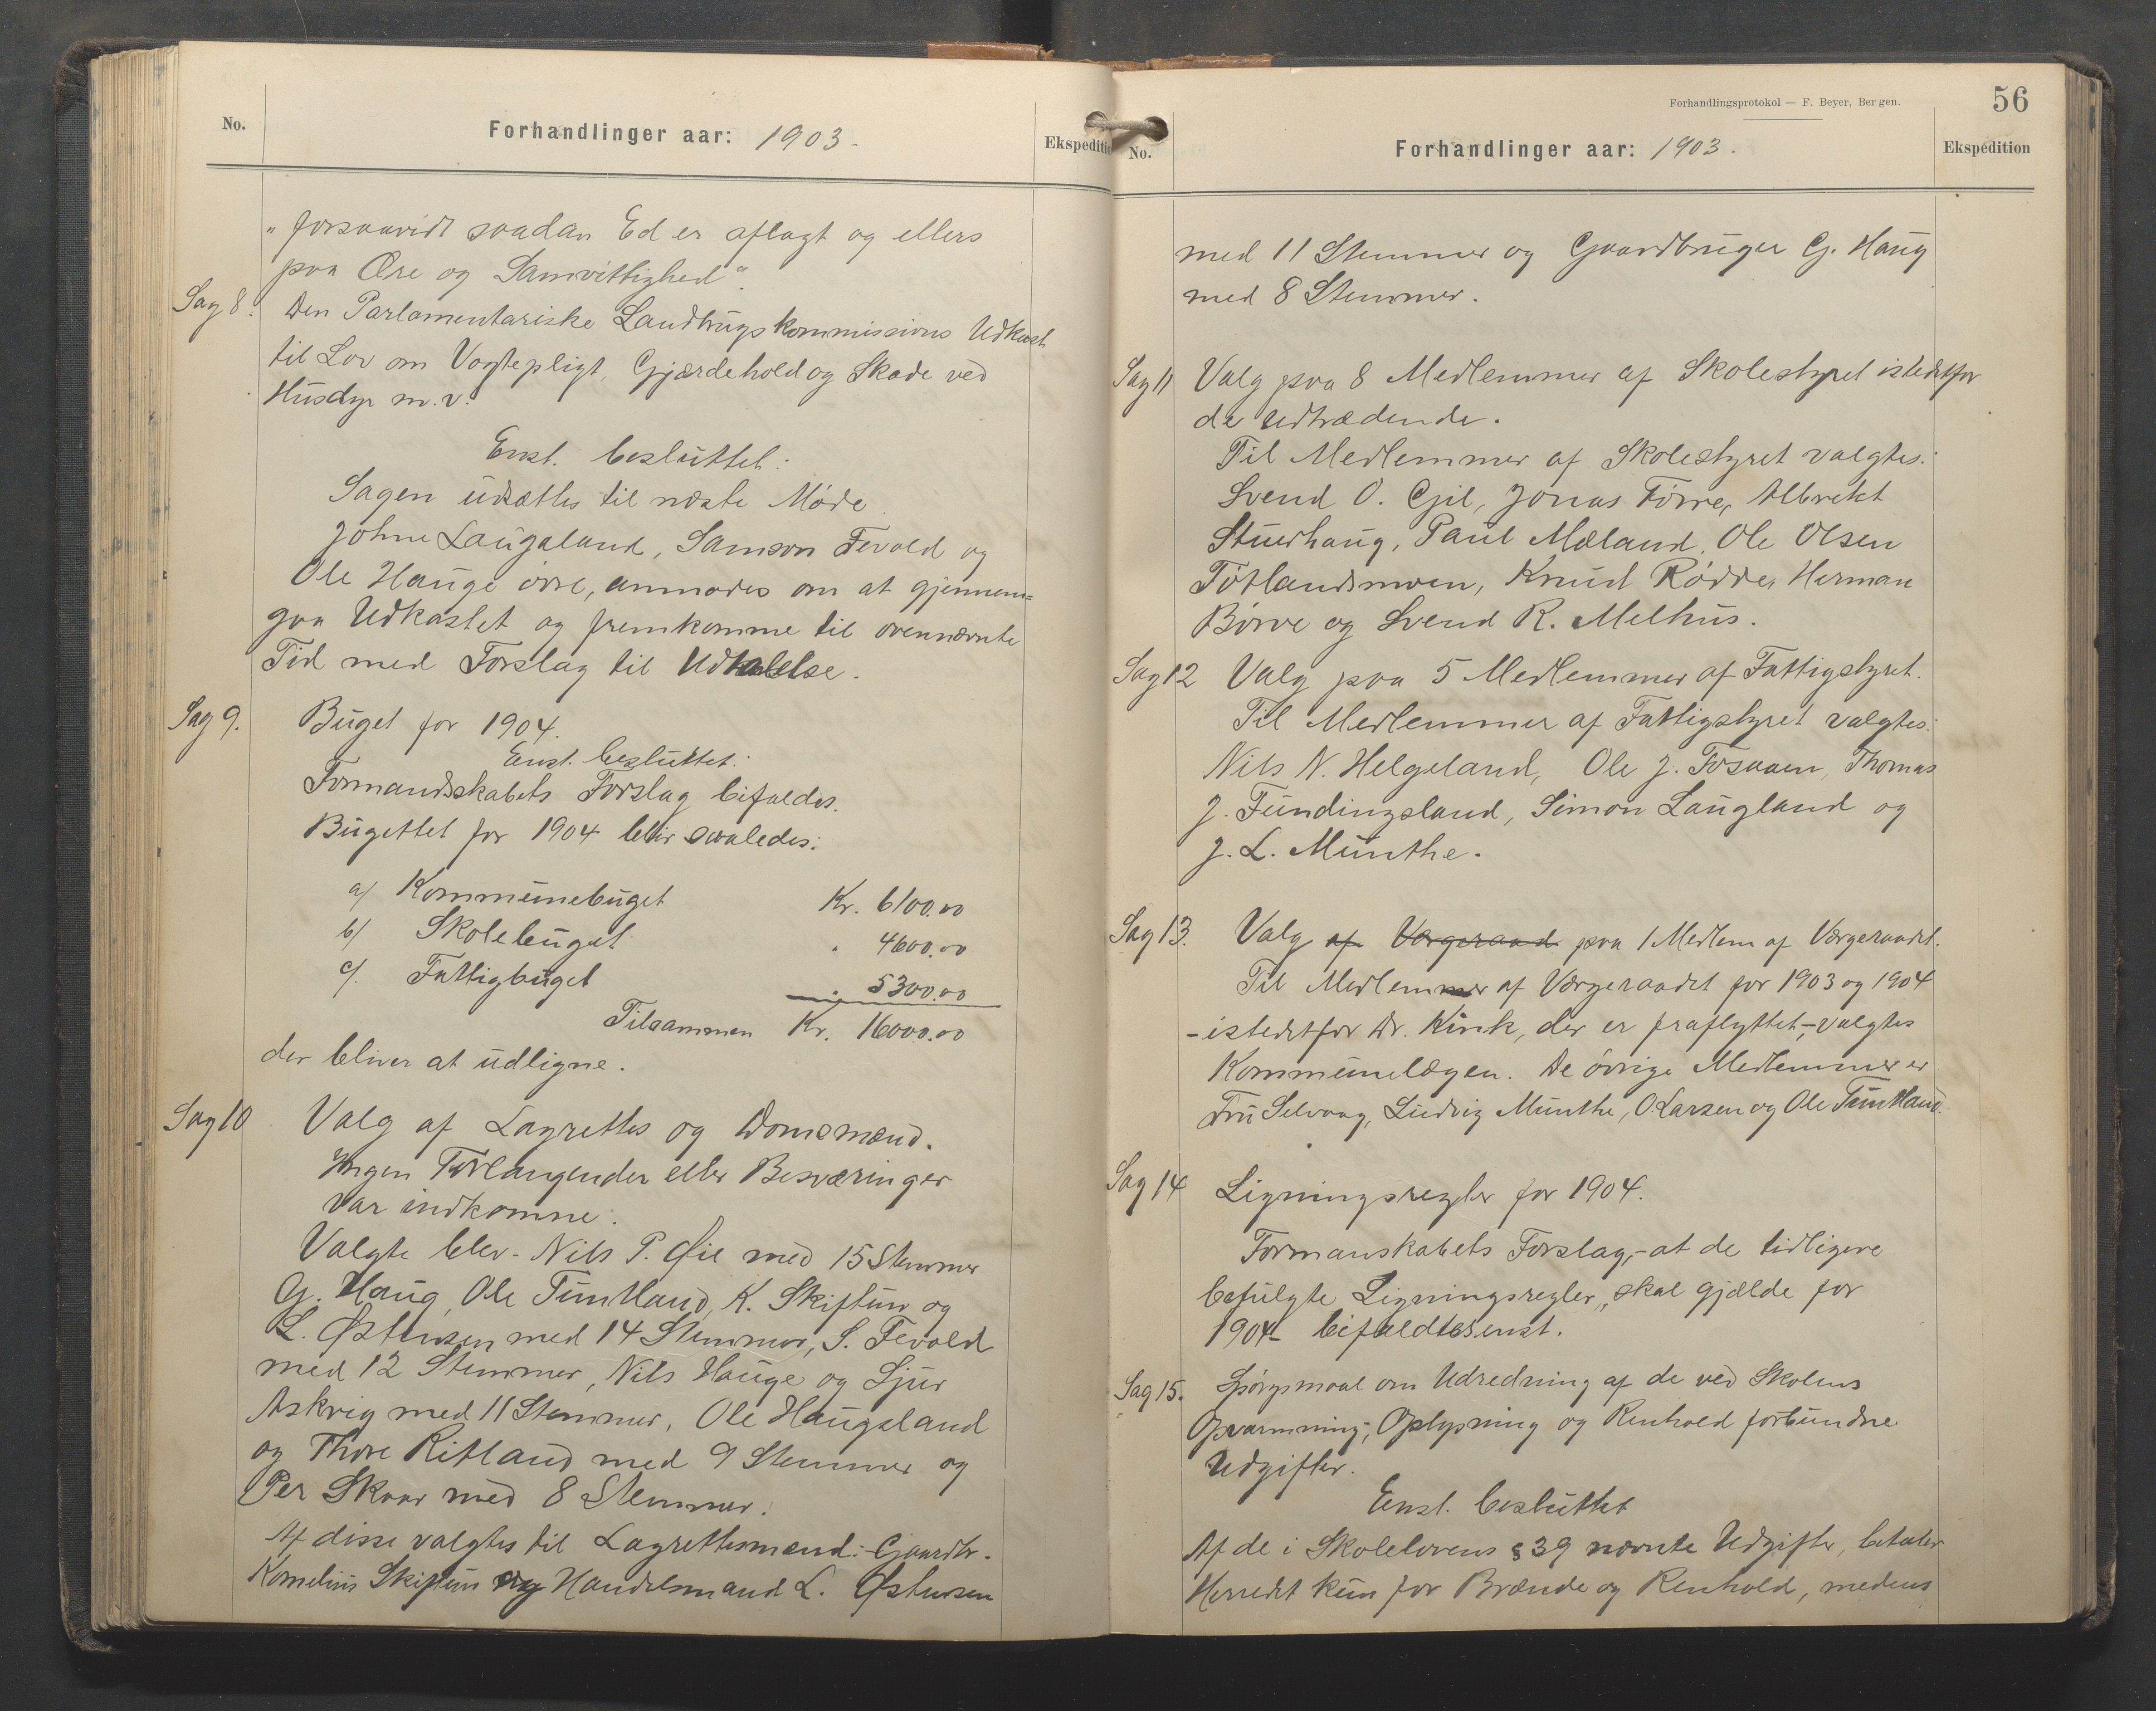 No.
Forhandlinger aar: 1903.
Ekspeditio
"forsaavidt saadan Ed er aflagt og ellers
paa Ære og Samvittighed".
Sag 8. Den Parlamentariske Landbrugskommissions Udkast
til Lov om Vogtepligt, Gjærdehold og Skade ved
Husdyr m.v.
Enst. besluttet:
Sagen udsættes til næste Møde.
Johne Laugaland, Samson Tevold og
Ole Hauge övre, anmodes om at gjennem=
gaa Udkastet og fremkomme til ovennævnte
Tid med Forslag til Udtalelse.
Sag 9. Buget for 1904.
Enst. besluttet:
Formandsskabets Forslag bifaldes.
Bugettet for 1904 blir saaledes:
a/ Kommunebuget Kr. 6100.00
b/ Skolebuget " 4600.00
c/. Fattigbuget " 5300.00
Tilsammen Kr. 16000.00
der bliver at udligne.
Sag 10 Valg af Lagrettes og Domsmænd.
Ingen Forlangender eller Besværinger
var indkomne.
Valgte blev - Nils P. Øie med 15 Stemmer
G. Haug, Ole Tuntland, K. Skiftun og
L. Østensen med 14 Stemmer, S. Tevold
med 12 Stemmer, Nils Hauge og Sjur
Askvig med 11 Stemmer, Ole Haugaland
og Thore Ritland med 9 Stemmer og
Per Skaar med 8 Stemmer.
Af disse valgtes til Lagrettesmænd: - Gaardbr.
Kornelius Skiftun og Handelsmand L. Østensen
Forhandlingsprotokol — F. Beyer, Bergen.
56
No.
Forhandlinger aar: 1903.
Ekspedition
med 11 Stemmer og Gaardbruger G. Haug
med 8 Stemmer.
Sag 11 Valg paa 8 Medlemmer af Skolestyret istedetfor
de udtrædende.
Til Medlemmer af Skolestyret valgtes:
Svend O. Gil, Jonas Förre, Albrekt
Stuerhaug, Paul Mæland, Ole Olsen
Tötlandsmoen, Knud Rödde, Herman
Börve og Svend R. Melhus.
Sag 12 Valg paa 5 Medlemmer af Fattigstyret.
Til Medlemmer af Fattigstyret valgtes:
Nils N. Helgeland, Ole J. Fosaaen, Thomas
J. Fundingsland, Simon Laugland og
J. L. Munthe.
Sag 13. Valg af Værgeraad paa 1 Medlem af Værgeraadet.
Til Medlemmer af Værgeraadet for 1903 og 1904
- istedetfor Dr. Kink, der er fraflyttet, - valgtes
Kommunelægen. De övrige Medlemmer er
Fru Selvaag, Ludvig Munthe, O. Larsen og Ole Tuntland.
Sag 14 Ligningsregler for 1904.
Formanskabets Forslag, - at de tidligere
befulgte Ligningsregler, skal gjælde for
1904 - bifaldtes enst.
Sag 15. Spörgsmaal om Udredning af de ved Skolens
Opvarmning, Oplysning og Renhold forbundne
Udgifter.
Enst. besluttet
Af de i Skolelovens § 39 nævnte Udgifter, betaler
Herredet kun for Brænde og Renhold, medens